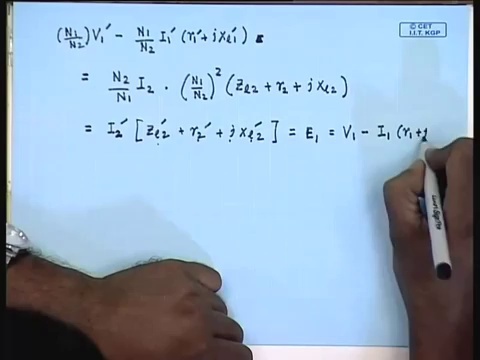 © CET
I.I.T. KGP
(N1/N2) V1′ − N1/N2 I1′ (r1′ + j xl1′) =
= N2/N1 I2 · (N1/N2)² (Zl2 + r2 + j xl2)
= I2′ [ Zl2′ + r2′ + j xl2′ ] = E1 = V1 − I1 (r1 + j